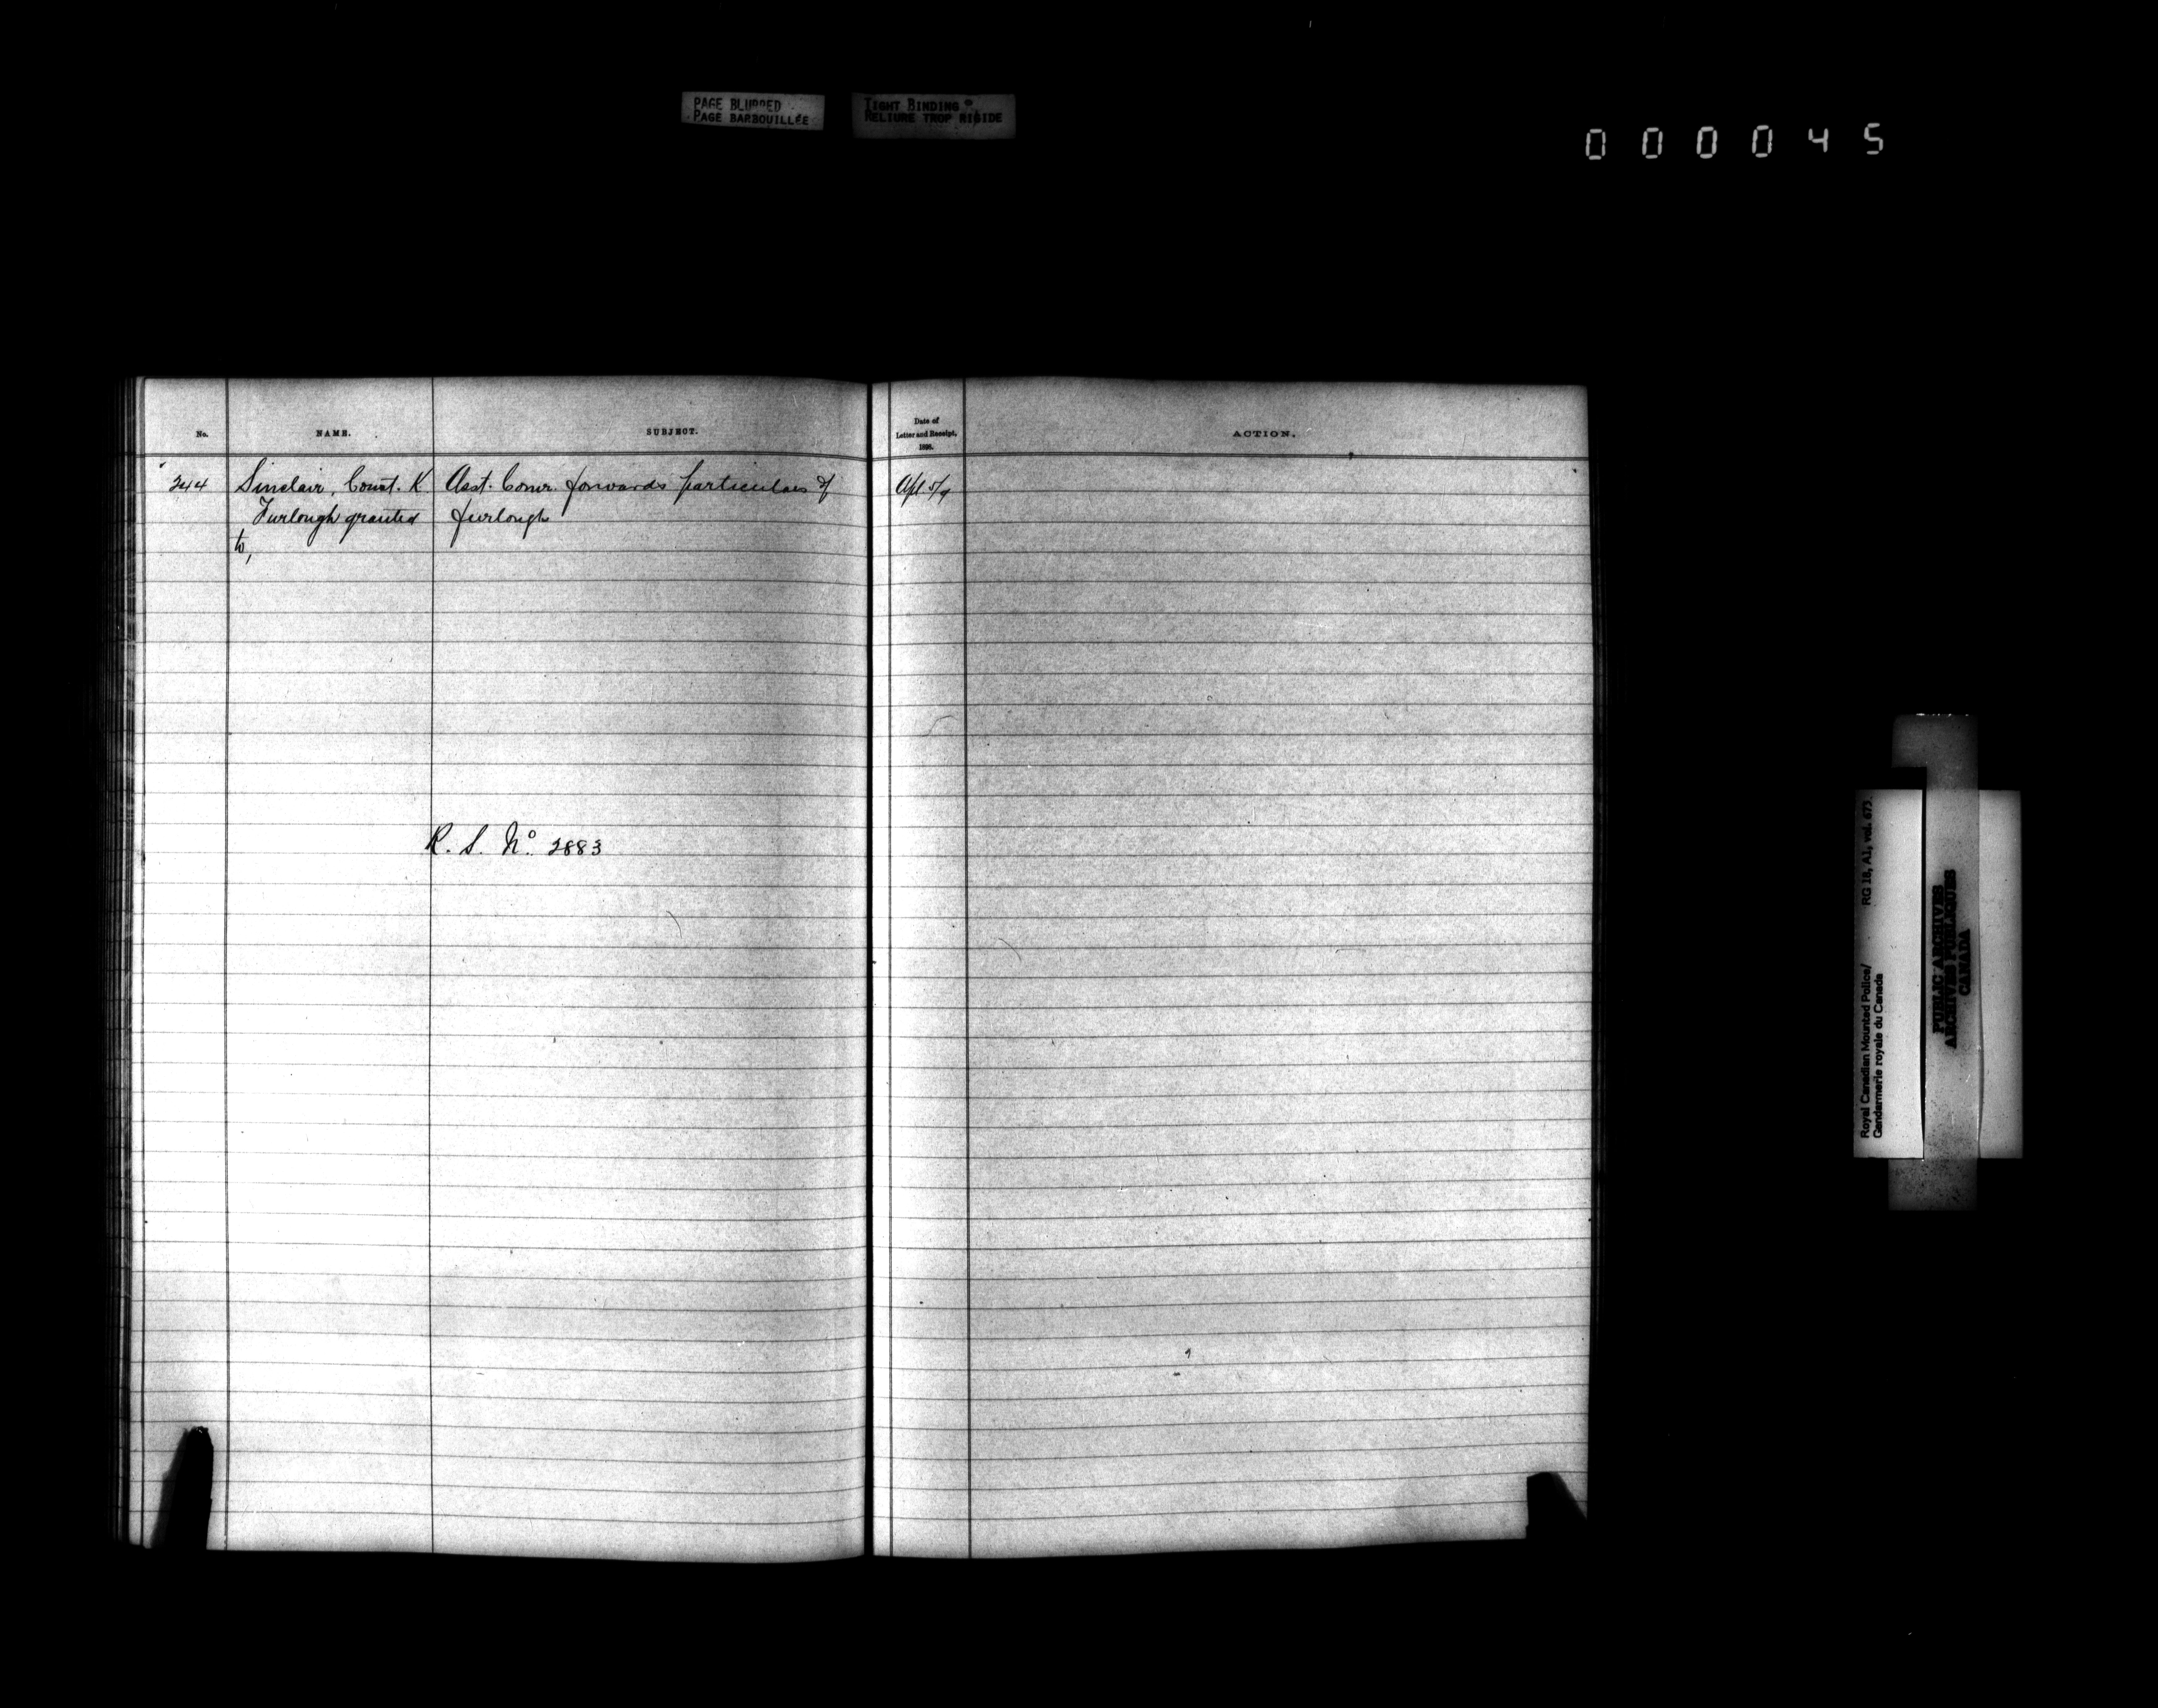 PAGE BLURRED
PAGE BARBOUILLÉE
TIGHT BINDING
RELIURE TROP RIGIDE
000045
No.
NAME.
SUBJECT.
Date of
Letter and Receipt,
1896.
ACTION.
244
Sinclair, Const. K
Asst. Comr. forwards particulars of
Apl. 5/9
Furlough granted
furlough
to,
R. S. No. 2883
Royal Canadian Mounted Police/ RG 18, A1, vol. 673.
Gendarmerie royale du Canada
PUBLIC ARCHIVES
ARCHIVES PUBLIQUES
CANADA